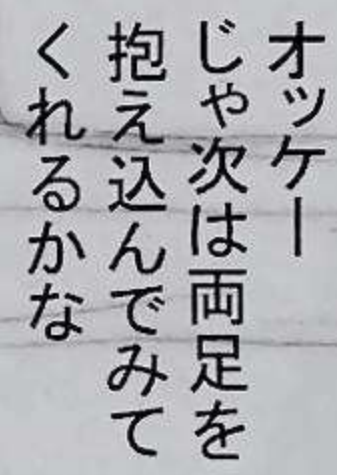 オッケー
じゃ次は両足を
抱え込んでみて
くれるかな